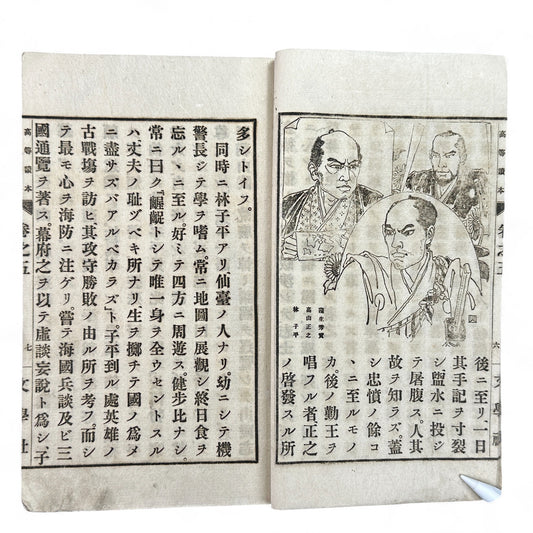 後ニ至リ、一日
其手記ヲ寸裂
シ、鹽水ニ投ジ
テ屠腹ス。人其
故ヲ知ラズ。蓋
シ忠憤ノ餘コ
ヽニ至ルモノ
カ。後ノ勤王ヲ
唱フル者正之
ノ啓發スル所
蒲生秀實
高山正之
林子平
六
高等讀本
卷之五
七
文學社
多シトイフ。
同時ニ林子平アリ、仙臺ノ人ナリ。幼ニシテ機
警、長シテ學ヲ嗜ム。常ニ地圖ヲ展觀シ、終日食ヲ
忘ルヽニ至ル。好ミテ四方ニ周遊ス。健歩比ナシ。
常ニ曰ク、『齷齪トシテ唯一身ヲ全ウセントスル
ハ、丈夫ノ耻ヅベキ所ナリ。生ヲ擲チテ國ノ爲メ
ニ盡サズバアルベカラズ』ト。子平到ル處英雄ノ
古戰塲ヲ訪ヒ、其攻守勝敗ノ由ル所ヲ考フ。而シ
テ最モ心ヲ海防ニ注ゲリ。嘗テ海國兵談及ビ三
國通覽ヲ著ス。幕府之ヲ以テ虛談妄說ト爲シ、子